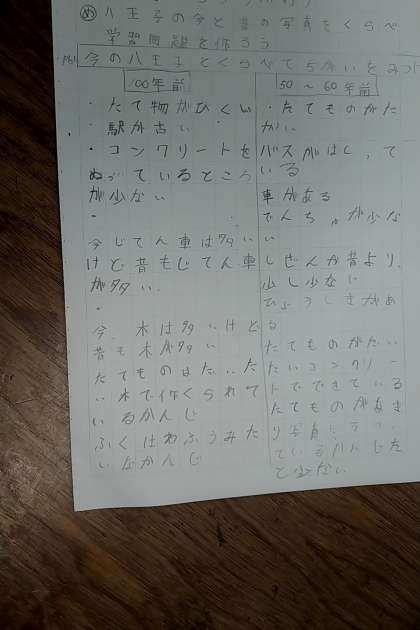 め 八王子の今と昔の写真をくらべ
学習問題を作ろう
今の八王子とくらべてちがいをみつ
100年前
・たて物がひくい
・駅が古い
・コンクリートを
ぬっているところ
が少ない
・
今じてん車は多い
けど昔もじてん車
が多い.
・
今、木は多いけど
昔も木が多い
たてものはだいた
い木で作くられて
いるかんじ
ふくはわふうみた
いなかんじ
50〜60年前
・たてものがた
かい
バスがはしって
いる
車がある
でんちゅうが少な
い
しぜんが昔より、
少し少ない
ひょうしきがあ
る
たてものがだい
たいコンクリー
トでできている
たてものがあま
り写真にうつっ
ている
と少ない